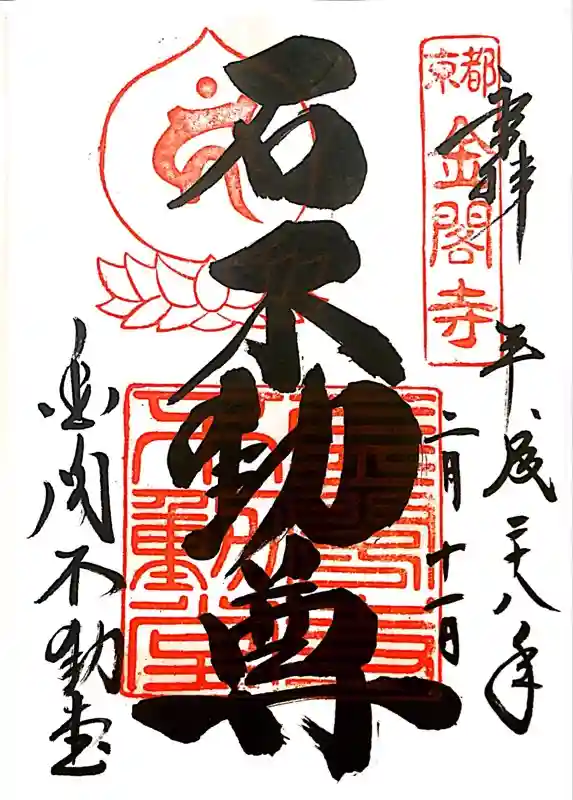 京都
金閣寺
奉拝
平成二十八年
二月十一日
石不動尊
金閣不動堂